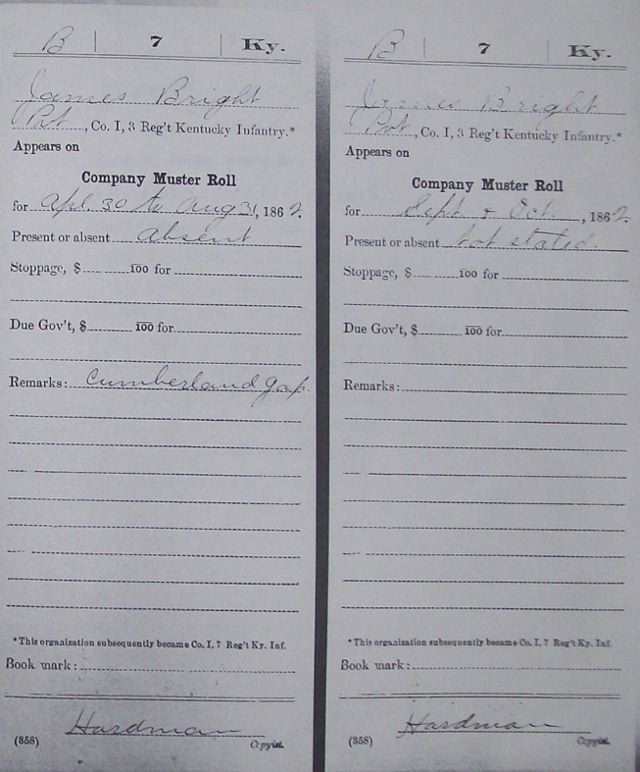 B | 7 | Ky.
James Bright
Pvt., Co. I, 3 Reg't Kentucky Infantry.*
Appears on
Company Muster Roll
for Apl. 30 to Aug 31, 1862.
Present or absent absent
Stoppage, $ 100 for
Due Gov't, $ 100 for
Remarks: Cumberland Gap
*This organization subsequently became Co. I, 7 Reg't Ky. Inf.
Book mark:
Hardman
(858) Copyist.
B | 7 | Ky.
James Bright
Pvt., Co. I, 3 Reg't Kentucky Infantry.*
Appears on
Company Muster Roll
for Sept & Oct., 1862.
Present or absent Not stated.
Stoppage, $ 100 for
Due Gov't, $ 100 for
Remarks:
*This organization subsequently became Co. I, 7 Reg't Ky. Inf.
Book mark:
Hardman
(858) Copyist.